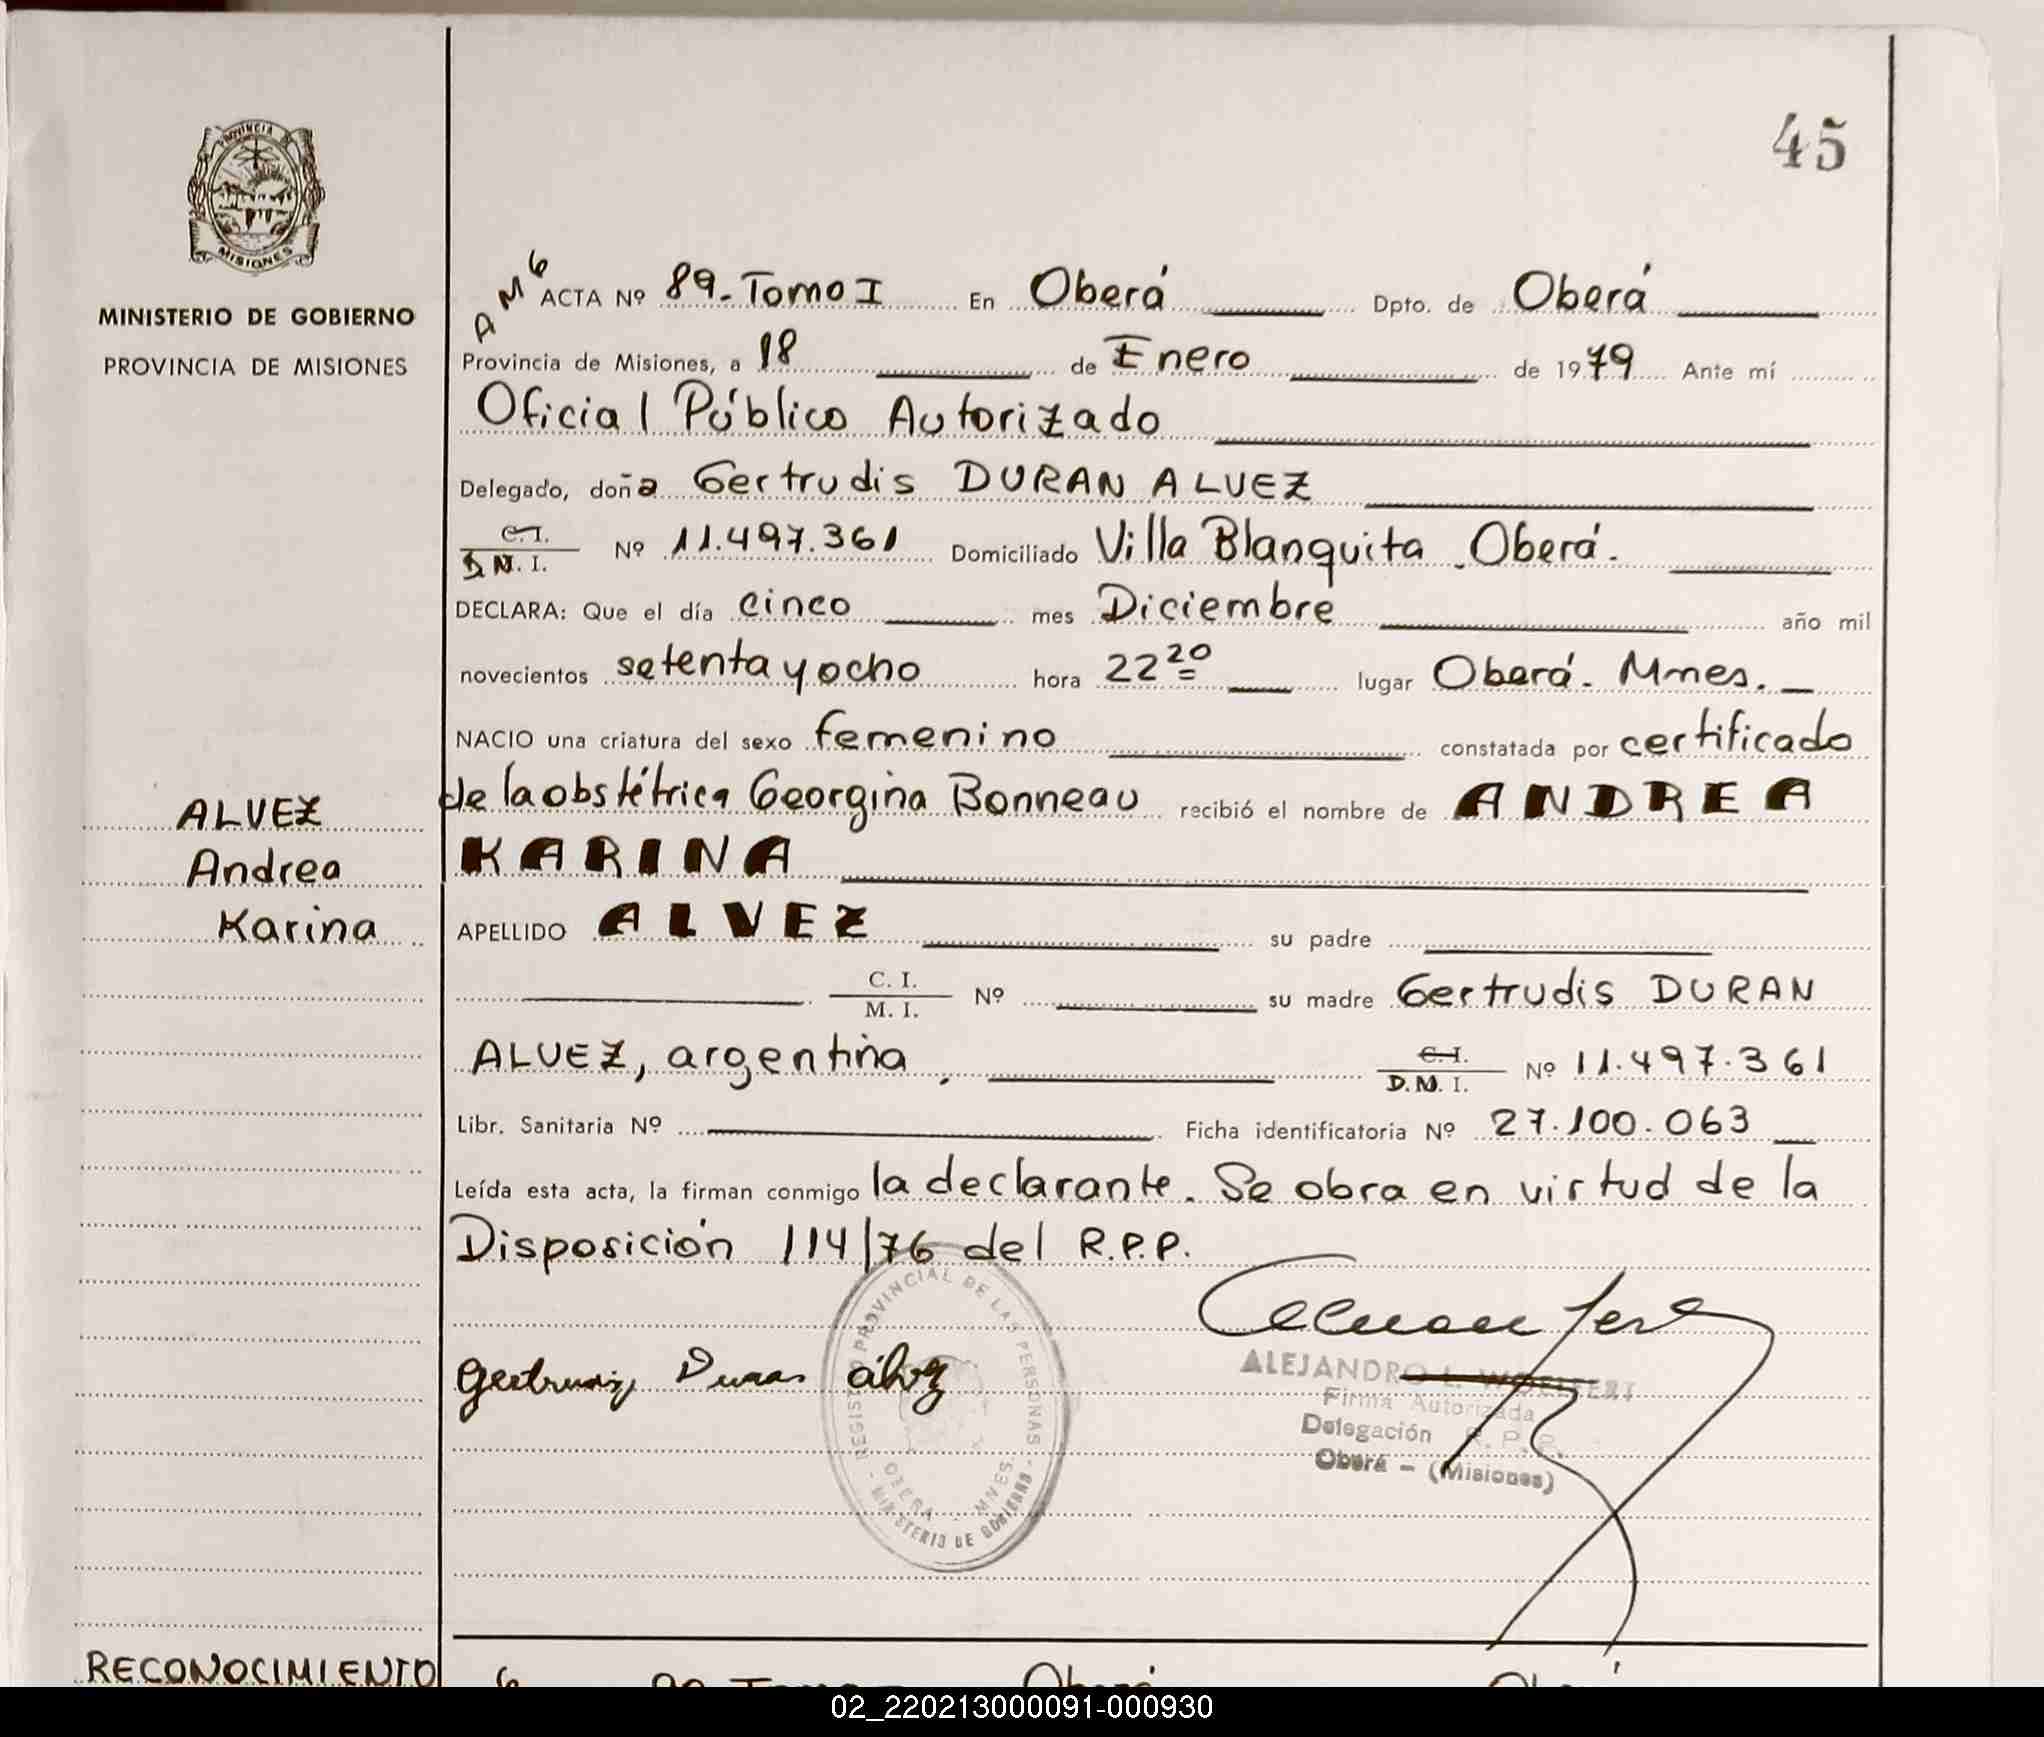 45
PROVINCIA DE
MISIONES
MINISTERIO DE GOBIERNO
PROVINCIA DE MISIONES
A M 6
ACTA Nº 89-Tomo I En Oberá Dpto. de Oberá
Provincia de Misiones, a 18 de Enero de 1979 Ante mí
Oficial Público Autorizado
Delegado, doña Gertrudis DURAN ALVEZ
C.I.
D.N.I. Nº 11.497.361 Domiciliado Villa Blanquita. Oberá.
DECLARA: Que el día cinco mes Diciembre año mil
novecientos setenta y ocho hora 22 20 lugar Oberá. Mnes.
NACIO una criatura del sexo femenino constatada por certificado
de la obstétrica Georgina Bonneau recibió el nombre de ANDREA
KARINA
APELLIDO ALVEZ su padre
C. I.
M. I. Nº su madre Gertrudis DURAN
ALVEZ, argentina. C.I.
D.N.I. Nº 11.497.361
Libr. Sanitaria Nº Ficha identificatoria Nº 27.100.063
Leída esta acta, la firman conmigo la declarante. Se obra en virtud de la
Disposición 114/76 del R.P.P.
ALVEZ
Andrea
Karina
Gertrudiz Duran álvez
REGISTRO PROVINCIAL DE LAS PERSONAS
OBERA - MNES.
MINISTERIO DE GOBIERNO
ALEJANDRO L. WOELFERT
Firma Autorizada
Delegación R. P. P.
Oberá - (Misiones)
RECONOCIMIENTO
02_220213000091-000930